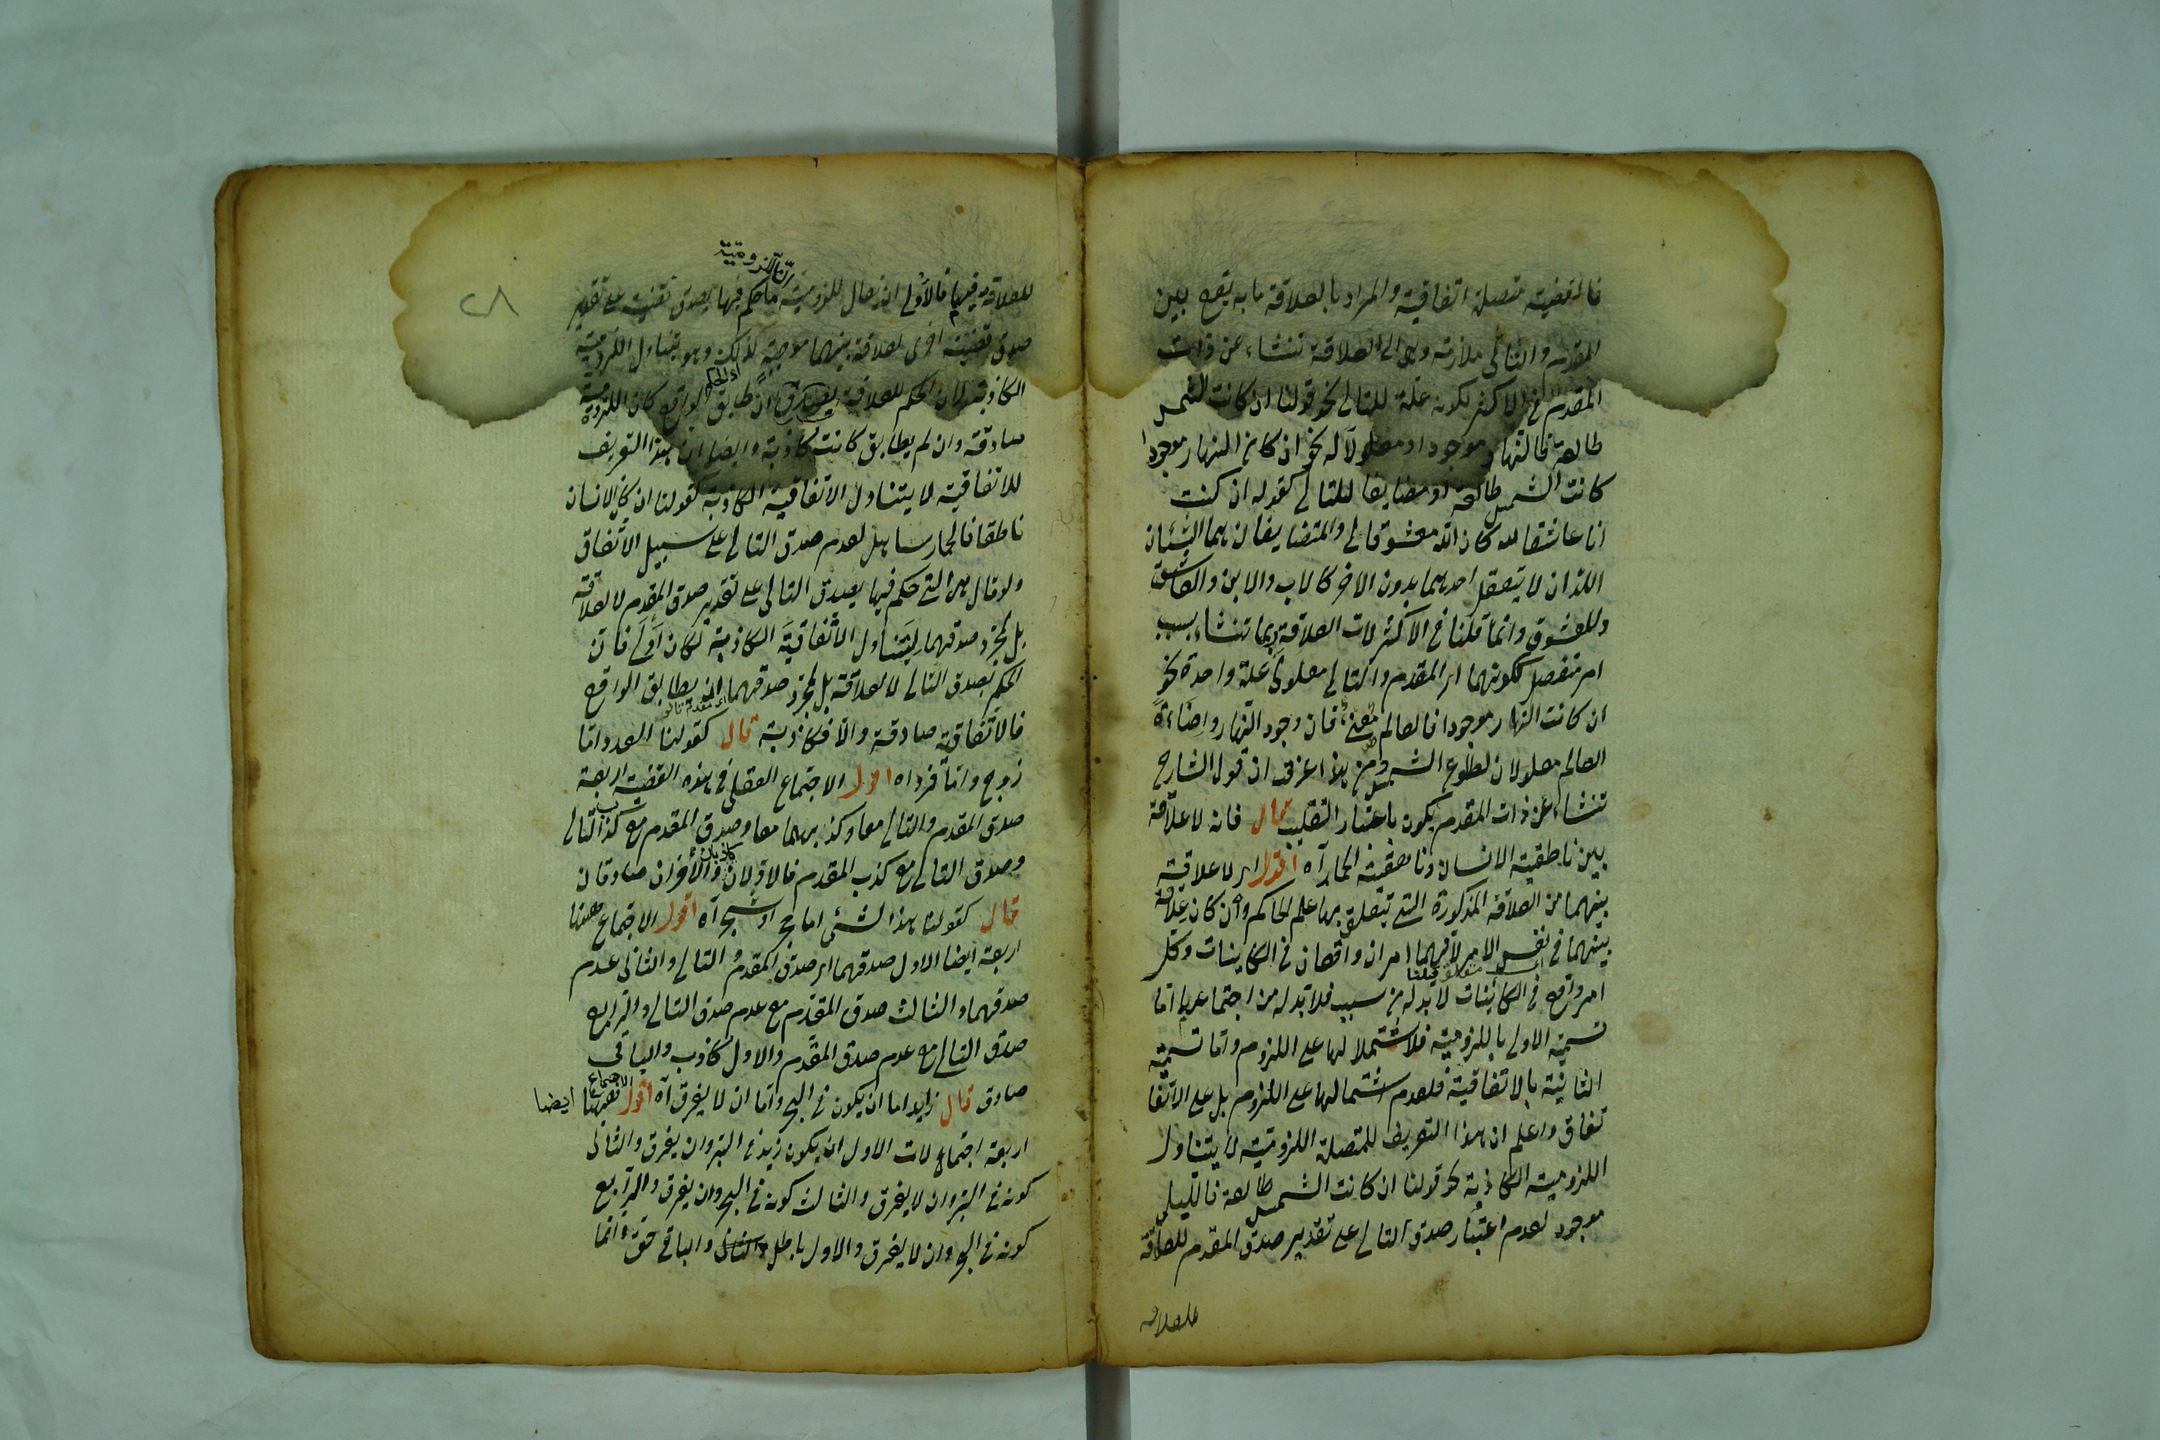 فالقضية متصلة اتفاقية والمراد بالعلاقة ما به يقع بين
المقدم والتالى ملازمة وهى اى العلاقة تنشاء عن ذات
المقدم فى الاكثر بكونه علة للتالى نحو قولنا ان كانت الشمس
طالعة فالنهار موجود او معلولا له نحو ان كان النهار موجودا
كانت الشمس طالعة او مضايفا للتالى كقوله ان كنت
انا عاشقا لله كان الله معشوقا لى والمتضايفان هما الشيئان
اللذان لا يتعقل احدهما بدون الاخر كالاب والابن والعاشق
والمعشوق وانما قلنا فى الاكثر لان العلاقة ربما تنشاء بسبب
امر منفصل ككونهما اى المقدم والتالى معلولى علة واحدة نحو
ان كانت النهار موجودا فالعالم مضئ فان وجود النهار واضاءة
العالم معلولان لطلوع الشمس ومن هذا عرف ان قول الشارح
تنشاء عن ذات المقدم يكون باعتبار التغليب قال فانه لا علاقة
بين ناطقية الانسان وناهقية الحمار آه اقول اى لا علاقة
بينهما من العلاقة المذكورة التى يتعلق بها علم الحاكم وان كان علاقة
بينهما فى نفس الامر لانهما امران واقعان فى الكاينات وكل
امر واقع فى الكائنات لا بد له من سبب فلا بد له من اجتماعهما اما
تسمية الاولى باللزومية فلاشتمالها على اللزوم واما تسمية
الثانية بالاتفاقية فلعدم اشتمالها على اللزوم بل على الاتفا
تفاق واعلم ان هذا التعريف للمتصلة اللزومية لا يتناول
اللزومية الكاذبة نحو قولنا ان كانت الشمس طالعة فالليل
موجود لعدم اعتبار صدق التالى على تقدير صدق المقدم للعلاقة
للعلاقة
٢٨
للعلاقة فيها فالاولى ان يقال اللزومية ما حكم فيها بصدق قضية على تقدير
صدق قضية اخرى لعلاقة بينهما موجبة لذلك وهو يتناول اللزومية
الكاذبة لان الحكم للعلاقة ان طابق الواقع كان اللزومية
صادقة وان لم يطابق كانت كاذبة وايضا ان هذا التعريف
للاتفاقية لا يتناول الاتفاقية الكاذبة كقولنا ان كان الانسان
ناطقا فالحمار ساهل لعدم صدق التالى على سبيل الاتفاق
ولو قال هى التى حكم فيها بصدق التالى على تقدير صدق المقدم لا لعلاقة
بل لمجرد صدقهما ليتناول الاتفاقية الكاذبة لكان اولى فان
الحكم بصدق التالى لا لعلاقة بل لمجرد صدقهما ان يطابق الواقع
فالاتفاقية صادقة والا فكاذبة قال كقولنا العدد اما
زوج واما فرد آه اقول الاجتماع العقلى فى هذه القضية اربعة
صدق المقدم والتالى معا وكذبهما معا وصدق المقدم مع كذب التالى
وصدق التالى مع كذب المقدم فالاولان كاذبان والاخران صادقان
قال كقولنا هذا الشئ اما حجر او شجر آه اقول الاجتماع ههنا
اربعة ايضا الاول صدقهما اى صدق المقدم والتالى والثانى عدم
صدقهما والثالث صدق المقدم مع عدم صدق التالى والرابع
صدق التالى مع عدم صدق المقدم والاول كاذب والباقى
صادق قال زيد اما ان يكون فى البحر واما ان لا يغرق آه اقول الاجتماع ههنا ايضا
اربعة اجتماع لان الاول ان يكون زيد فى البر وان يغرق والثانى
كونه فى البر وان لا يغرق والثالث كونه فى البحر وان يغرق والرابع
كونه فى البحر وان لا يغرق والاول باطل والباقى حق وانما